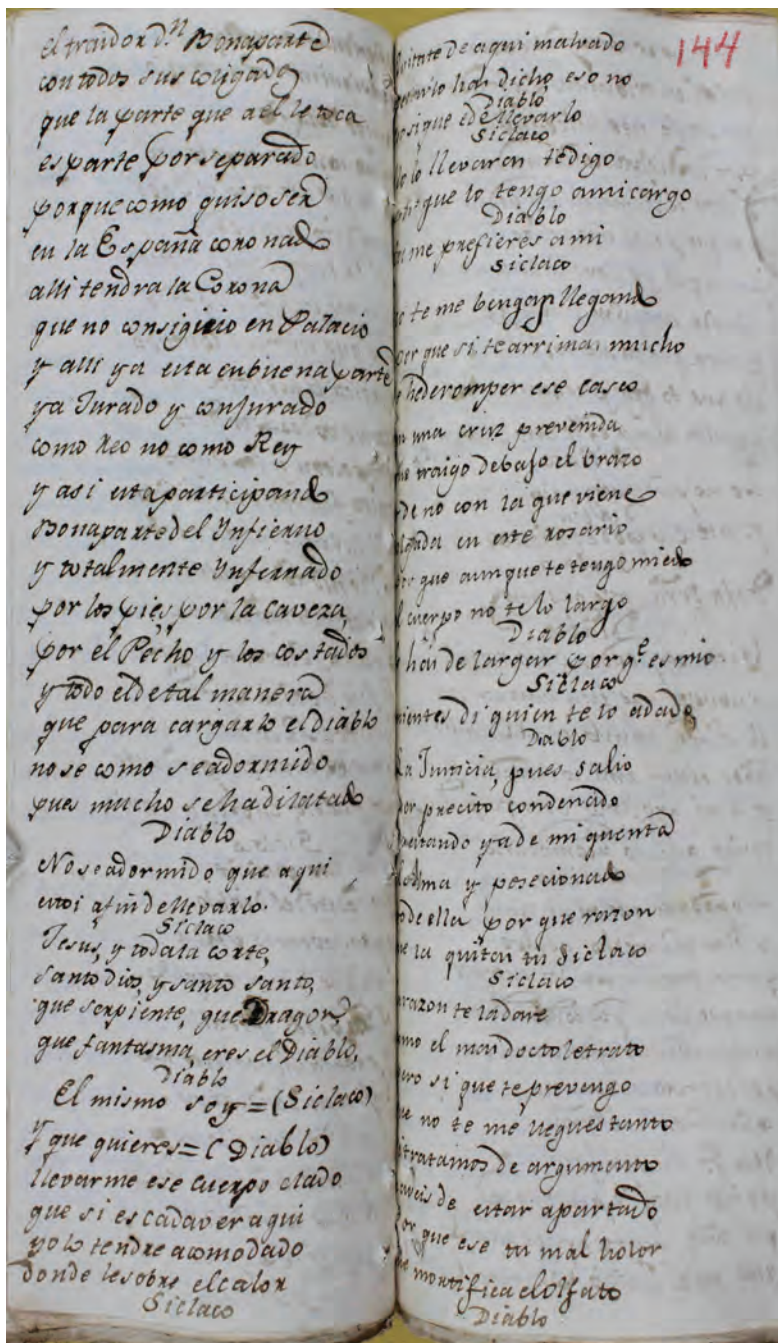 el traidor D.n Bonaparte
con todos sus coligados
que la parte que a el le toca
es parte por separado
porque como quiso ser
en la España coronado
alli tendra la Corona
que no consigirio en Palacio
y alli ya esta en buena parte
ya Jurado y conjurado
como Reo no como Rey
y asi esta participando
Bonaparte del Ynfierno
y totalmente Ynfernado
por los pies por la caveza,
por el Pecho y los costados
y todo el de tal manera
que para cargarlo el diablo
no se como se adormido
pues mucho se ha dilatado
Diablo
No se adormido que aqui
estoi a fin de llevarlo.
Siclaco
Jesus, y toda la corte,
santo dios, y santo santo,
que serpiente, que Dragon,
que fantasma, eres el Diablo,
Diablo
El mismo soy = (Siclaco)
y que quieres = (Diablo)
llevarme ese cuerpo elado
que si es cadaver aqui
yo lo tendre acomodado
donde le sobre el calor
Siclaco
144
quitate de aqui malvado
han dicho eso no
Diablo
sique e de llevarlo
Siclaco
lo llevaran te digo
que lo tengo a mi cargo
Diablo
me prefieres a mi
Siclaco
te me bengas llegando
que si te arrimas mucho
he de romper ese casco
una cruz prevenida
traigo debajo el brazo
de no con la que viene
en este rosario
que aunque te tengo miedo
cuerpo no te lo largo
Diablo
has de largar porq.e es mio
Siclaco
mientes di quien te lo adado
Diablo
La Justicia, pues salio
por precito condenado
estando ya de mi quenta
y posecionado
de ella por que razon
la quitas tu Siclaco
Siclaco
razon te la dare
el mas docto letrato
pero si que te prevengo
no te me llegues tanto
tratamos de argumento
aveis de estar apartado
por que ese tu mal holor
me mortifica el olfato
Diablo